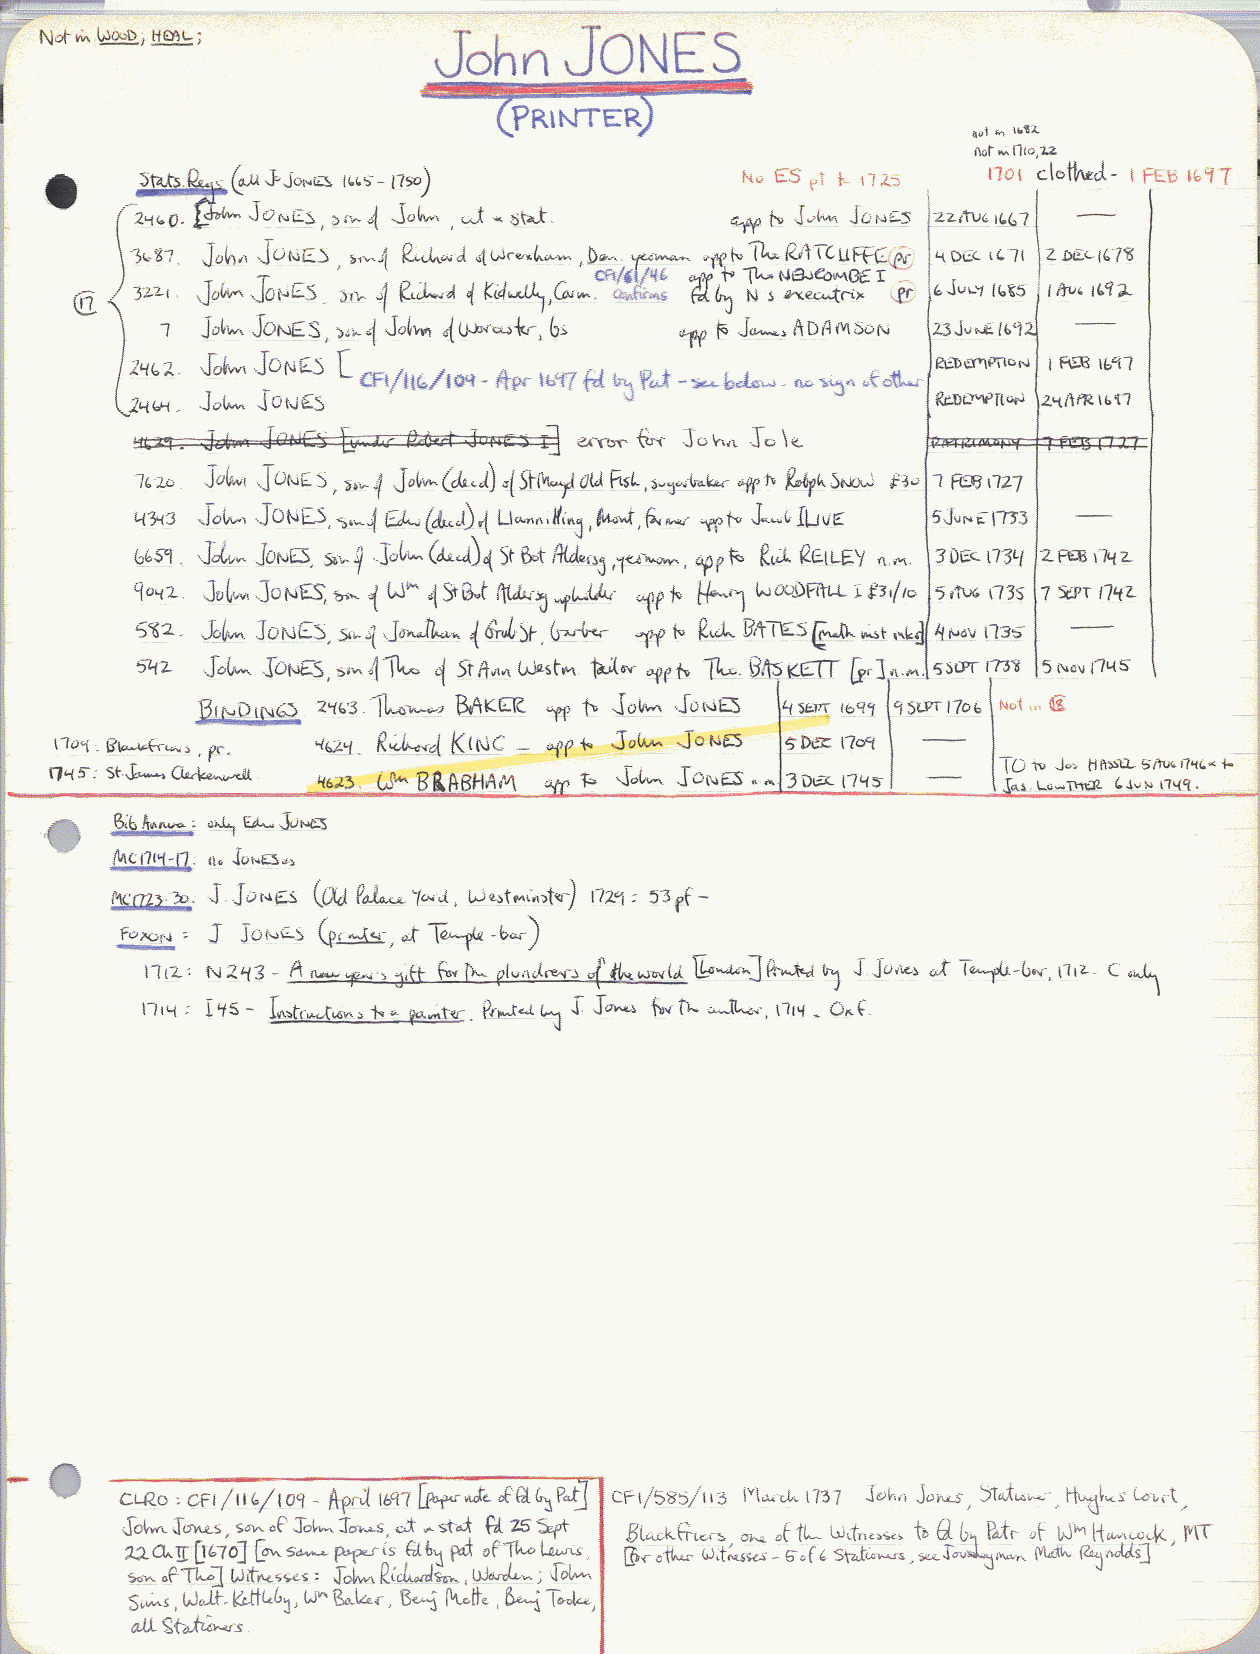 Not in WOOD, HEAL;
John JONES
(PRINTER)
not in 1682
not in 1710, 22
Stats. Regs (all J JONES 1665-1750) No ES pt to 1725 1701 clothed - 1 FEB 1697
2460. [John JONES, son of John, cit & stat. app to John JONES 22 AUG 1667 —
3687. John JONES, son of Richard of Wrexham, Den. yeoman app to Tho RATCLIFFE (pr) 4 DEC 1671 2 DEC 1678
CF1/61/46 app to Tho NEWCOMBE I
(17) 3221. John JONES, son of Richard of Kidwelly, Carm. confirms fd by N's executrix (pr) 6 JULY 1685 1 AUG 1692
7 John JONES, son of John of Worcester, bs app to James ADAMSON 23 JUNE 1692 —
2462. John JONES [ REDEMPTION 1 FEB 1697
CF1/116/109 - Apr 1697 fd by Pat - see below - no sign of other
2464. John JONES REDEMPTION 24 APR 1697
4629. John JONES [under Robert JONES I] error for John Jole PATRIMONY 7 FEB 1727
7620 John JONES, son of John (decd) of St Magd Old Fish, sugarbaker app to Ralph SNOW £30 7 FEB 1727
4343 John JONES, son of Edw (decd) of Llannilling, Mont, farmer app to Jacob ILIVE 5 JUNE 1733 —
6659. John JONES, son of John (decd) of St Bot Aldersg, yeoman, app to Rich REILEY n.m. 3 DEC 1734 2 FEB 1742
9042. John JONES, son of Wm of St Bot Aldersg upholder app to Henry WOODFALL I £31/10 5 AUG 1735 7 SEPT 1742
582. John JONES, son of Jonathan of Grub St, barber app to Rich BATES [math inst mkr] 4 NOV 1735 —
542 John JONES, son of Tho of St Ann Westm. tailor app to Tho. BASKETT [pr] n.m. 5 SEPT 1738 5 NOV 1745
BINDINGS 2463. Thomas BAKER app to John JONES 4 SEPT 1699 9 SEPT 1706 Not in 18
1709: Blackfriars, pr. 4624. Richard KING — app to John JONES 5 DEC 1709 —
1745: St. James Clerkenwell 4623. Wm BRABHAM app to John JONES n.m 3 DEC 1745 — TO to Jos HASSEL 5 AUG 1746 & to
Jas. LOWTHER 6 JUN 1749.
Bib Annua: only Edw JONES
MC1714-17: no JONESes
MC1723-30: J. JONES (Old Palace Yard, Westminster) 1729: 53 pf -
FOXON: J JONES (printer, at Temple-bar)
1712: N243 - A new year's gift for the plundrers of the world [London] Printed by J. Jones at Temple-bar, 1712. C only
1714: I45 - Instructions to a painter. Printed by J. Jones for the author, 1714. Oxf.
CLRO: CF1/116/109 - April 1697 [paper note of fd by Pat]
John Jones, son of John Jones, cit & stat fd 25 Sept
22 Ch II [1670] [on same paper is fd by pat of Tho Lewis,
son of Tho] Witnesses: John Richardson, Warden; John
Sims, Walt. Kettleby, Wm Baker, Benj Motte, Benj Tooke,
all Stationers.
CF1/585/113 March 1737 John Jones, Stationer, Hughes Court,
Blackfriars, one of the witnesses to fd by Patr of Wm Hancock, MT
[for other witnesses - 5 of 6 Stationers, see Journeyman Math Reynolds]